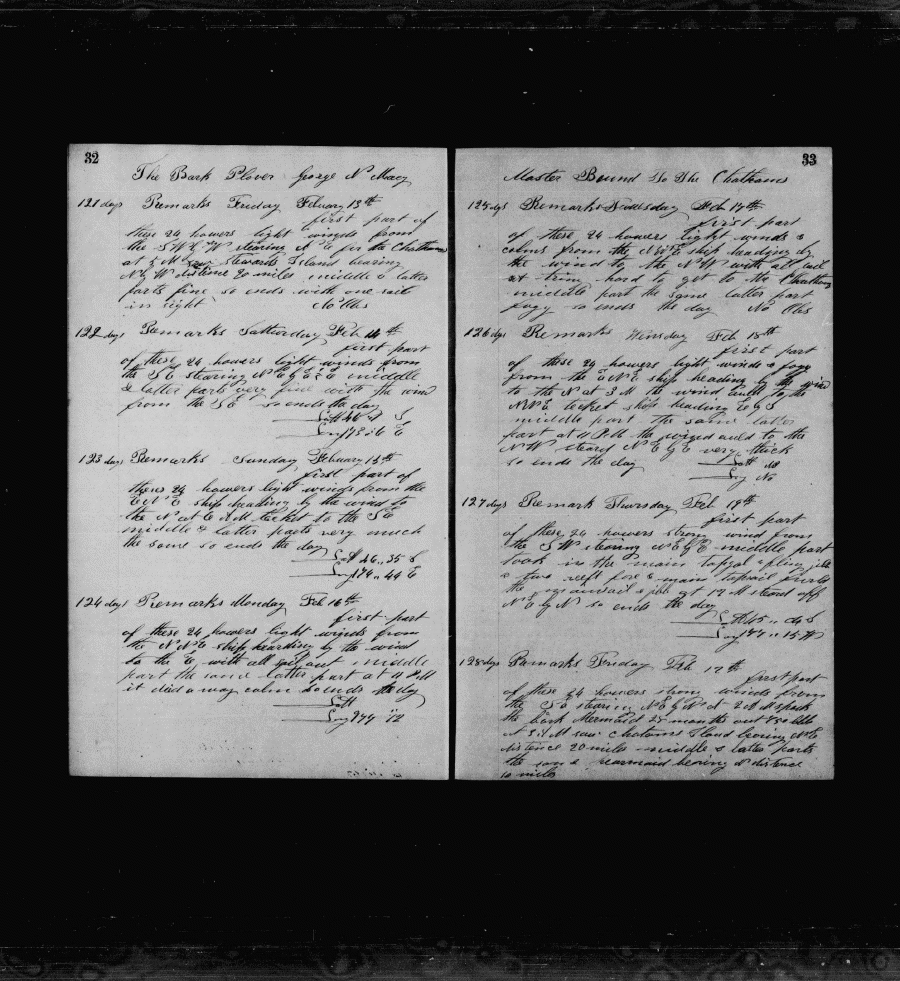 32
The Bark Plover George N Macy
121 days Remarks Friday Febuary 13th
first part of
these 24 howers light winds from
the SW & W stearing N E for the Chathams
at 5 M saw stewards Island bearing
N & W distence 20 miles middle & latter
parts fine so ends with one sail
in sight No Obs
122 days Remarks Satturday Feb 14th
first part
of these 24 howers light winds from
the S E stearing N E & E & E middle
& latter parts very fine with the wind
from the S E so ends the day
Latt 46 S
Long 173 56 E
123 days Remarks Sunday Febuary 15th
first part of
theres 24 howers light winds from the
E N E ship heading by the wind to
the N at 6 AM tecket to the S E
middle & latter parts very much
the same so ends the day
Latt 46 ,, 35 S
Long 174 ,, 44 E
124 days Remarks Monday Feb 16th
first part
of these 24 howers light winds from
the N N E ship hearding by the wind
to the E with all sail out middle
part the same latter part at 4 P M
it died away calm so ends the day
Latt
Long 174 "12
33
Master Bound To The Chathams
125 dys Remarks Feb 17th
first part
of these 24 howers light winds &
calms from the N & E ship heading by
the wind to the N W with all sail
at trim hard to get to the Chathams
middle part the same latter part
fogy so ends the day No Obs
126 dys Remarks Winsday Feb 18th
first part
of these 24 howers light winds & foge
from the E N E ship heading by the wind
to the N at 3 M the wind to the
NNE tecket ship heading E & S
middle part the same latter
part at 4 P.M. the wind to the
N W stearg N E & E very thick
so ends the day Latt
Log No
127 days Remark Thursday Feb 19th
first part
of these 24 howers strong wind from
the S W stearing N E & E middle part
took in the main topgal & jib
& two reff fore & main topsail furld
the mainsail & jib at 12 M stood off
N E & N so ends the day
Latt 45 ,, 04 S
Long 177 ,, 15 W
128 dys Remarks Friday Feb th
first part
of these 24 howers strong winds from
the S E stearing N E & N at 2 M spack
the bark Mermaid 27 months out 850 bbls
at 5 A M saw Chatams Iland bearing N E
distence 20 miles middle & latter parts
the same mearmaid bearing distence
10 miles